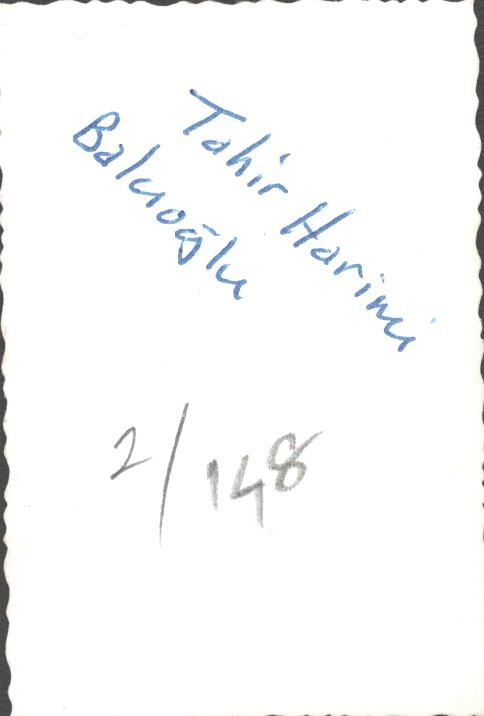 Tahir Harimi
Balcıoğlu
2/148